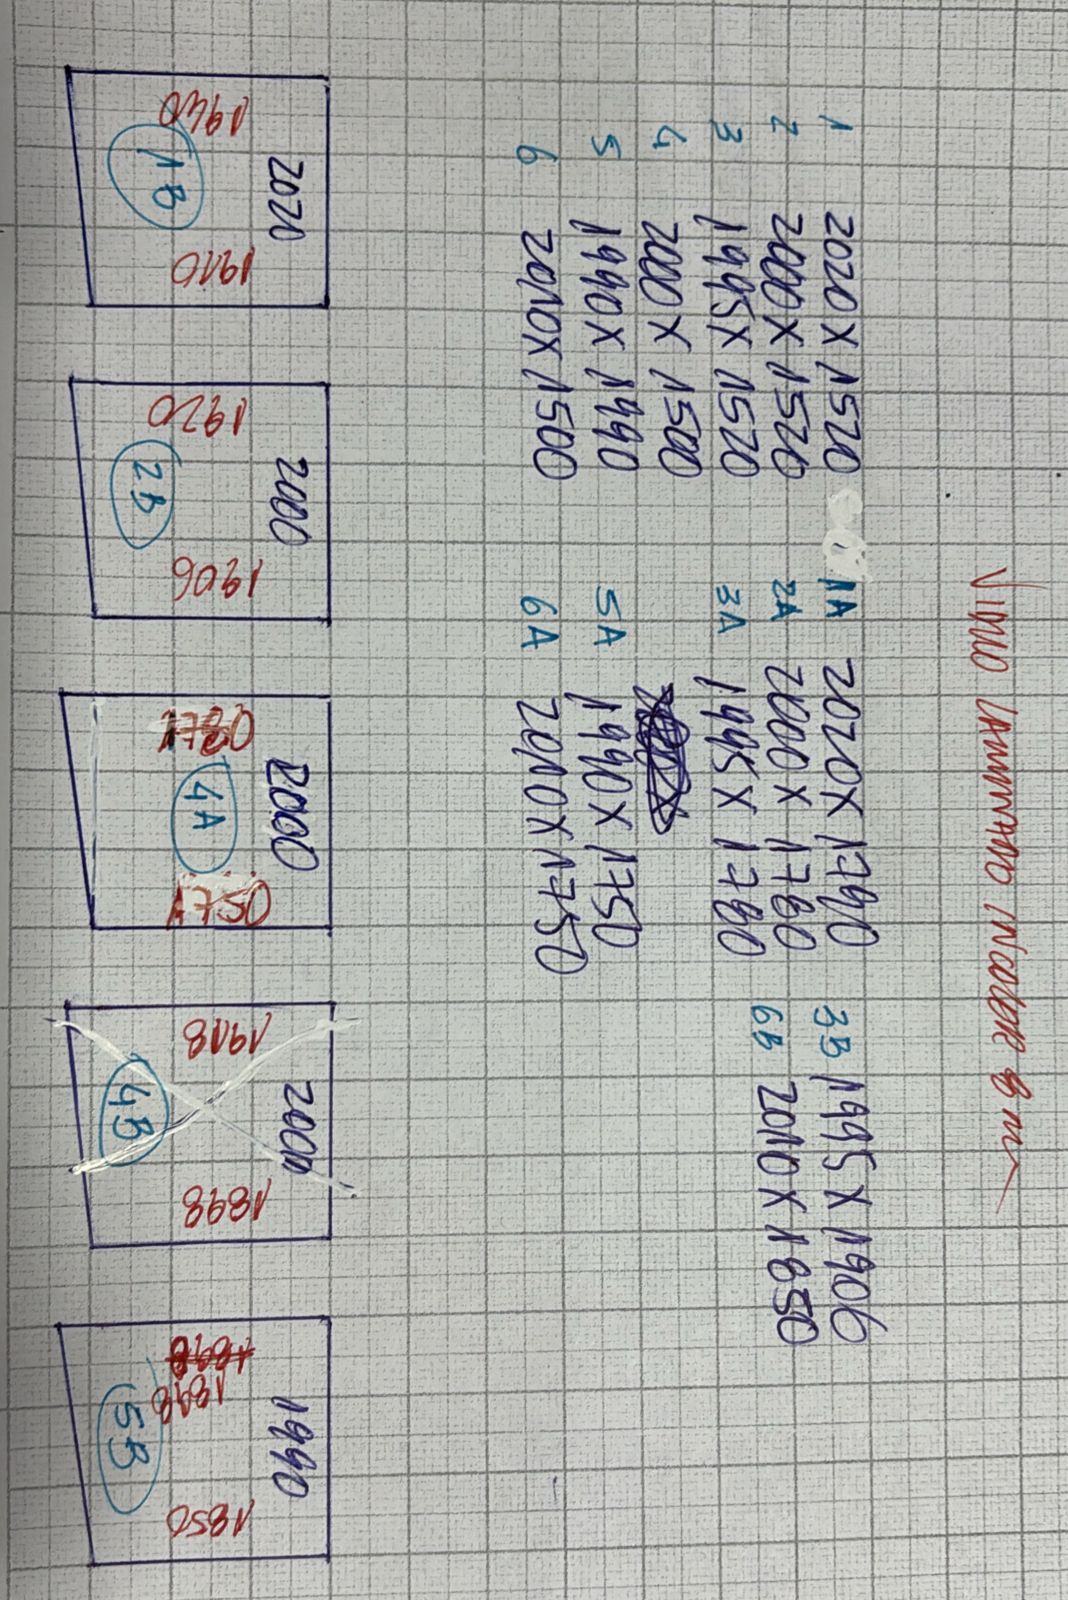 VIDRIO LAMINADO INCOLOR 8 m
1 2020 X 1520 1A 2020 X 1790 3B 1995 X 1906
2 2000 X 1520 2A 2000 X 1780 6B 2010 X 1850
3 1995 X 1520 3A 1995 X 1780
4 2000 X 1500
5 1990 X 1990 5A 1990 X 1750
6 2010 X 1500 6A 2010 X 1750
2020
1940 1910
1B
2000
1920 1906
2B
2000
1780 1750
4A
2000
1918 1898
4B
1990
1898
1898 1850
5B